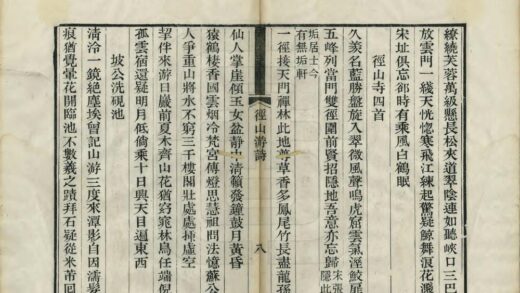 繚繞芙蓉萬級懸長松夾道翠陰連如聽峽口三巴
放雲門一綫天恍惚寒飛江練起驚疑鯨舞浪花
宋址俱忘卻時有乘風白鶴眠
徑山寺四首
久羨名藍勝盤旋入翠微風聲鳴虎窟雲氣溼鮫
五峰列當門雙徑圍前賢招隱地吾意亦忘歸宋張
隱此
垢居士今
有無垢軒
一徑接天門禪林此地尊草香多鳳尾竹長盡龍孫
徑山游詩 八
仙人掌崖傾玉女盆靜中清籟發鐘鼓月黃昏
猿鶴棲香國雲烟冷梵宮傳燈思慧祖問法憶蘇公
人爭重山將水不窮三千樓閣壯處處挿虛空
挈伴來游日巖前夏木齊山花猶窕林鳥任端倪
孤雲宿還疑明月低倘乘十日興天目遍東西
坡公洗硯池
清泠一鏡絶塵埃曾記山游三度來潭影白因濡
痕猶覺暈花開臨池不數羲之蹟拜石疑從米芾回